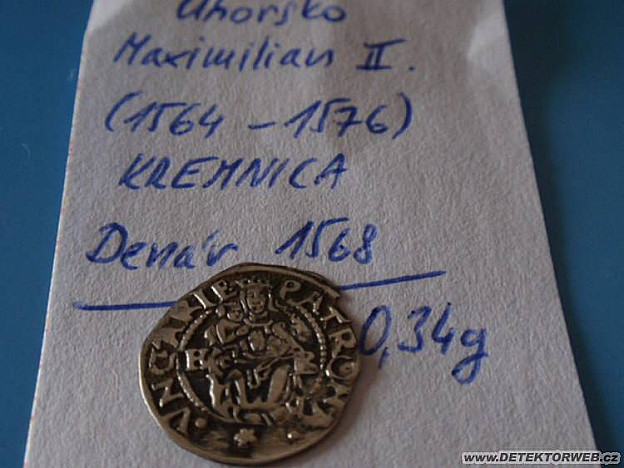 Uhorsko
Maximilian II.
(1564 – 1576)
KREMNICA
Denár 1568
0,34g
PATRON
VNGARIE
K
www.DETEKTORWEB.cz